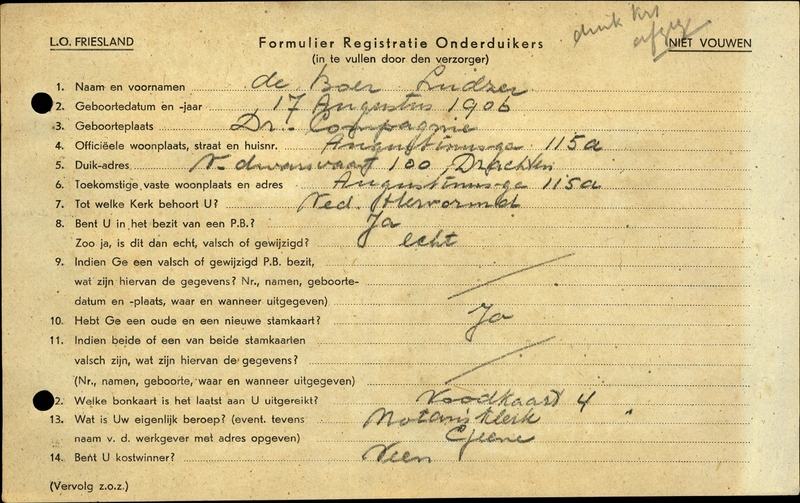 L.O. FRIESLAND
Formulier Registratie Onderduikers
NIET VOUWEN
(in te vullen door den verzorger)
1. Naam en voornamen de Boer Ludzer
2. Geboortedatum en -jaar 17 Augustus 1906
3. Geboorteplaats Dr. Compagnie
4. Officiëele woonplaats, straat en huisnr. Augustinusga 115a
5. Duik-adres N. dwarsvaart 100, Drachten
6. Toekomstige vaste woonplaats en adres Augustinusga 115a
7. Tot welke Kerk behoort U? Ned. Hervormd
8. Bent U in het bezit van een P.B.? Ja
Zoo ja, is dit dan echt, valsch of gewijzigd? echt
9. Indien Ge een valsch of gewijzigd P.B. bezit,
wat zijn hiervan de gegevens? Nr., namen, geboorte-
datum en -plaats, waar en wanneer uitgegeven)
10. Hebt Ge een oude en een nieuwe stamkaart? Ja
11. Indien beide of een van beide stamkaarten
valsch zijn, wat zijn hiervan de gegevens?
(Nr., namen, geboorte, waar en wanneer uitgegeven)
2. Welke bonkaart is het laatst aan U uitgereikt? Noodkaart 4
13. Wat is Uw eigenlijk beroep? (event. tevens Notarisklerk "
naam v. d. werkgever met adres opgeven)
14. Bent U kostwinner? Neen
(Vervolg z.o.z.)